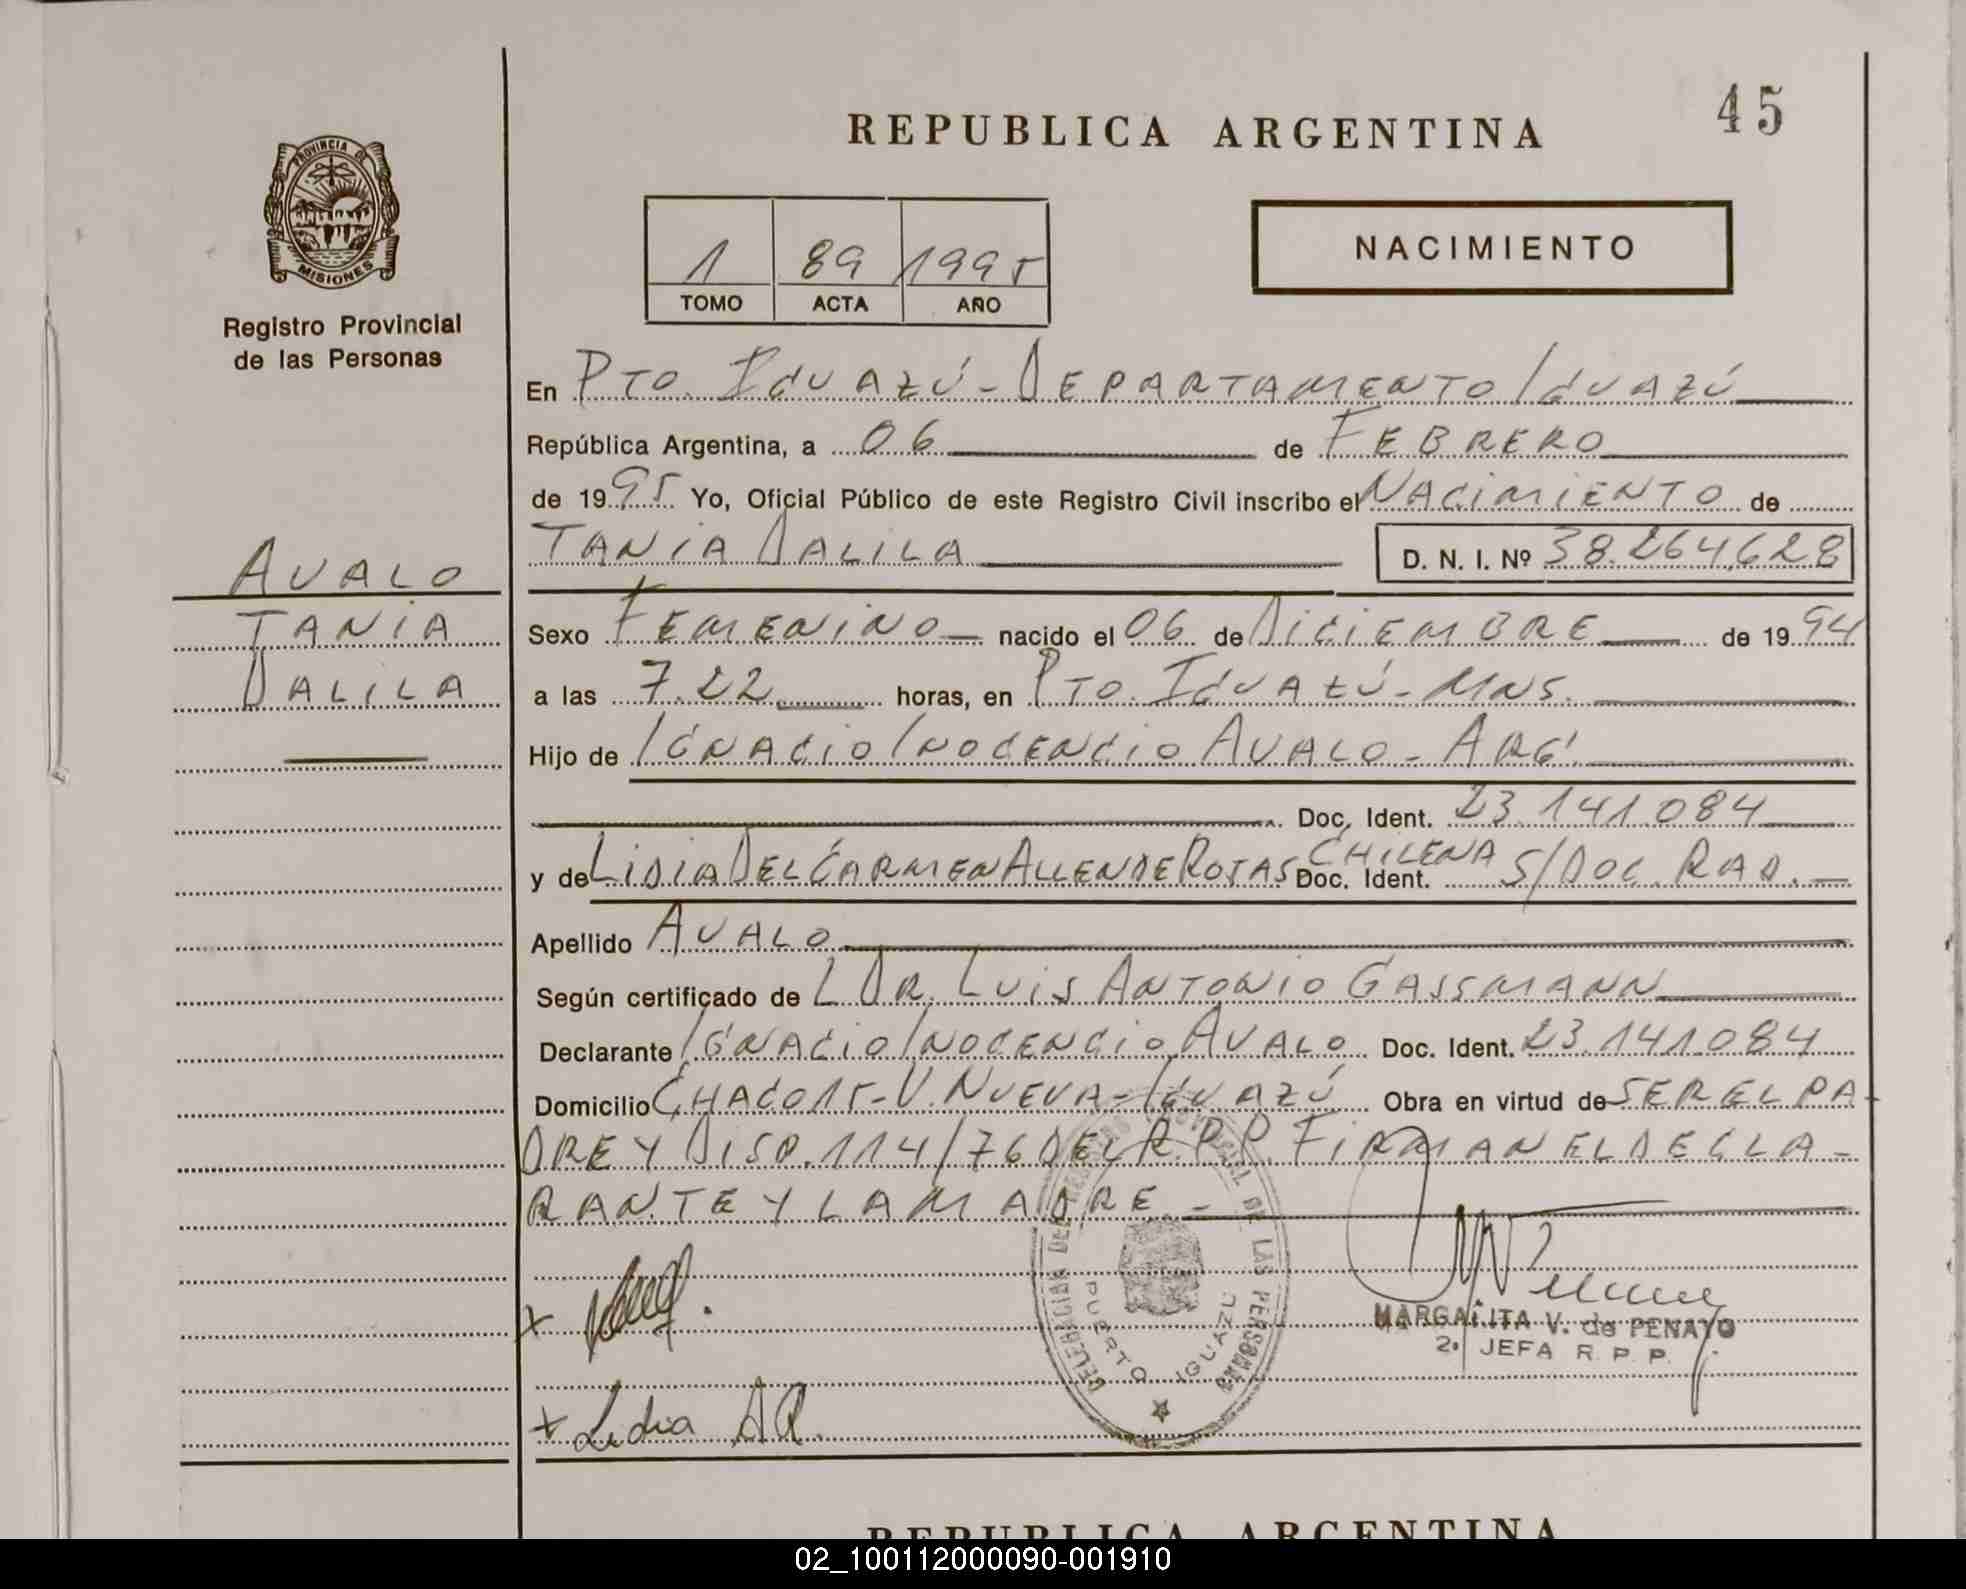 45
REPUBLICA ARGENTINA
PROVINCIA DE
MISIONES
Registro Provincial
de las Personas
1 89 1995
TOMO ACTA AÑO
NACIMIENTO
En PTO. IGUAZÚ - DEPARTAMENTO IGUAZÚ
República Argentina, a 06 de FEBRERO
de 1995 Yo, Oficial Público de este Registro Civil inscribo el NACIMIENTO de
TANIA DALILA D. N. I. Nº 38.264.628
AVALO
TANIA
DALILA
Sexo FEMENINO nacido el 06 de DICIEMBRE de 1994
a las 7.22 horas, en PTO. IGUAZÚ - MNS.
Hijo de IGNACIO INOCENCIO AVALO - ARG.
Doc. Ident. 23.141.084
y de LIDIA DEL CARMEN ALLENDE ROJAS CHILENA Doc. Ident. S/DOC. RAD.
Apellido AVALO
Según certificado de L DR. LUIS ANTONIO GASSMANN
Declarante IGNACIO INOCENCIO AVALO Doc. Ident. 23.141.084
Domicilio CHACO 15 - V. NUEVA - IGUAZÚ Obra en virtud de SER EL PA-
DRE Y DISP. 114/76 DEL R.P.P. FIRMAN EL DECLA-
RANTE Y LA MADRE. -
DELEGACION DEL REGISTRO PROVINCIAL DE LAS PERSONAS
PUERTO IGUAZU
MARGARITA V. de PENAYO
2. JEFA R. P. P.
x
x Lidia AR.
REPUBLICA ARGENTINA
02_100112000090-001910